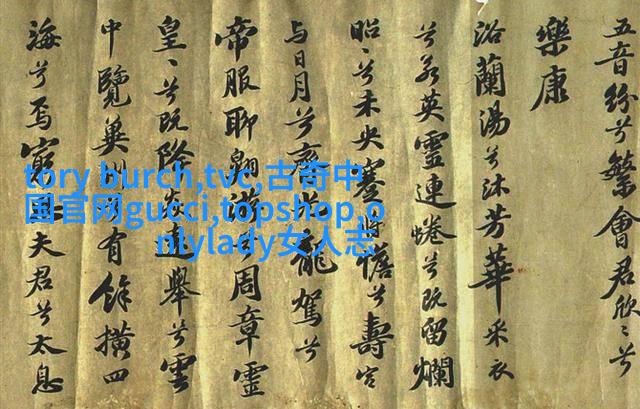 五音紛兮繁會君欣〻兮
樂康
浴蘭湯兮沐芳華采衣
兮若英靈連蜷兮既留爛
昭〻兮未央蹇將憺兮壽宮
与日月兮齊龍駕兮
帝服聊翱遊兮周章靈
皇〻兮既降遠舉兮雲
中覽冀州有餘橫四
海兮焉窮夫君兮太息
tory burch,tvc,古奇中
国官网gucci,topshop,o
nlylady女人志